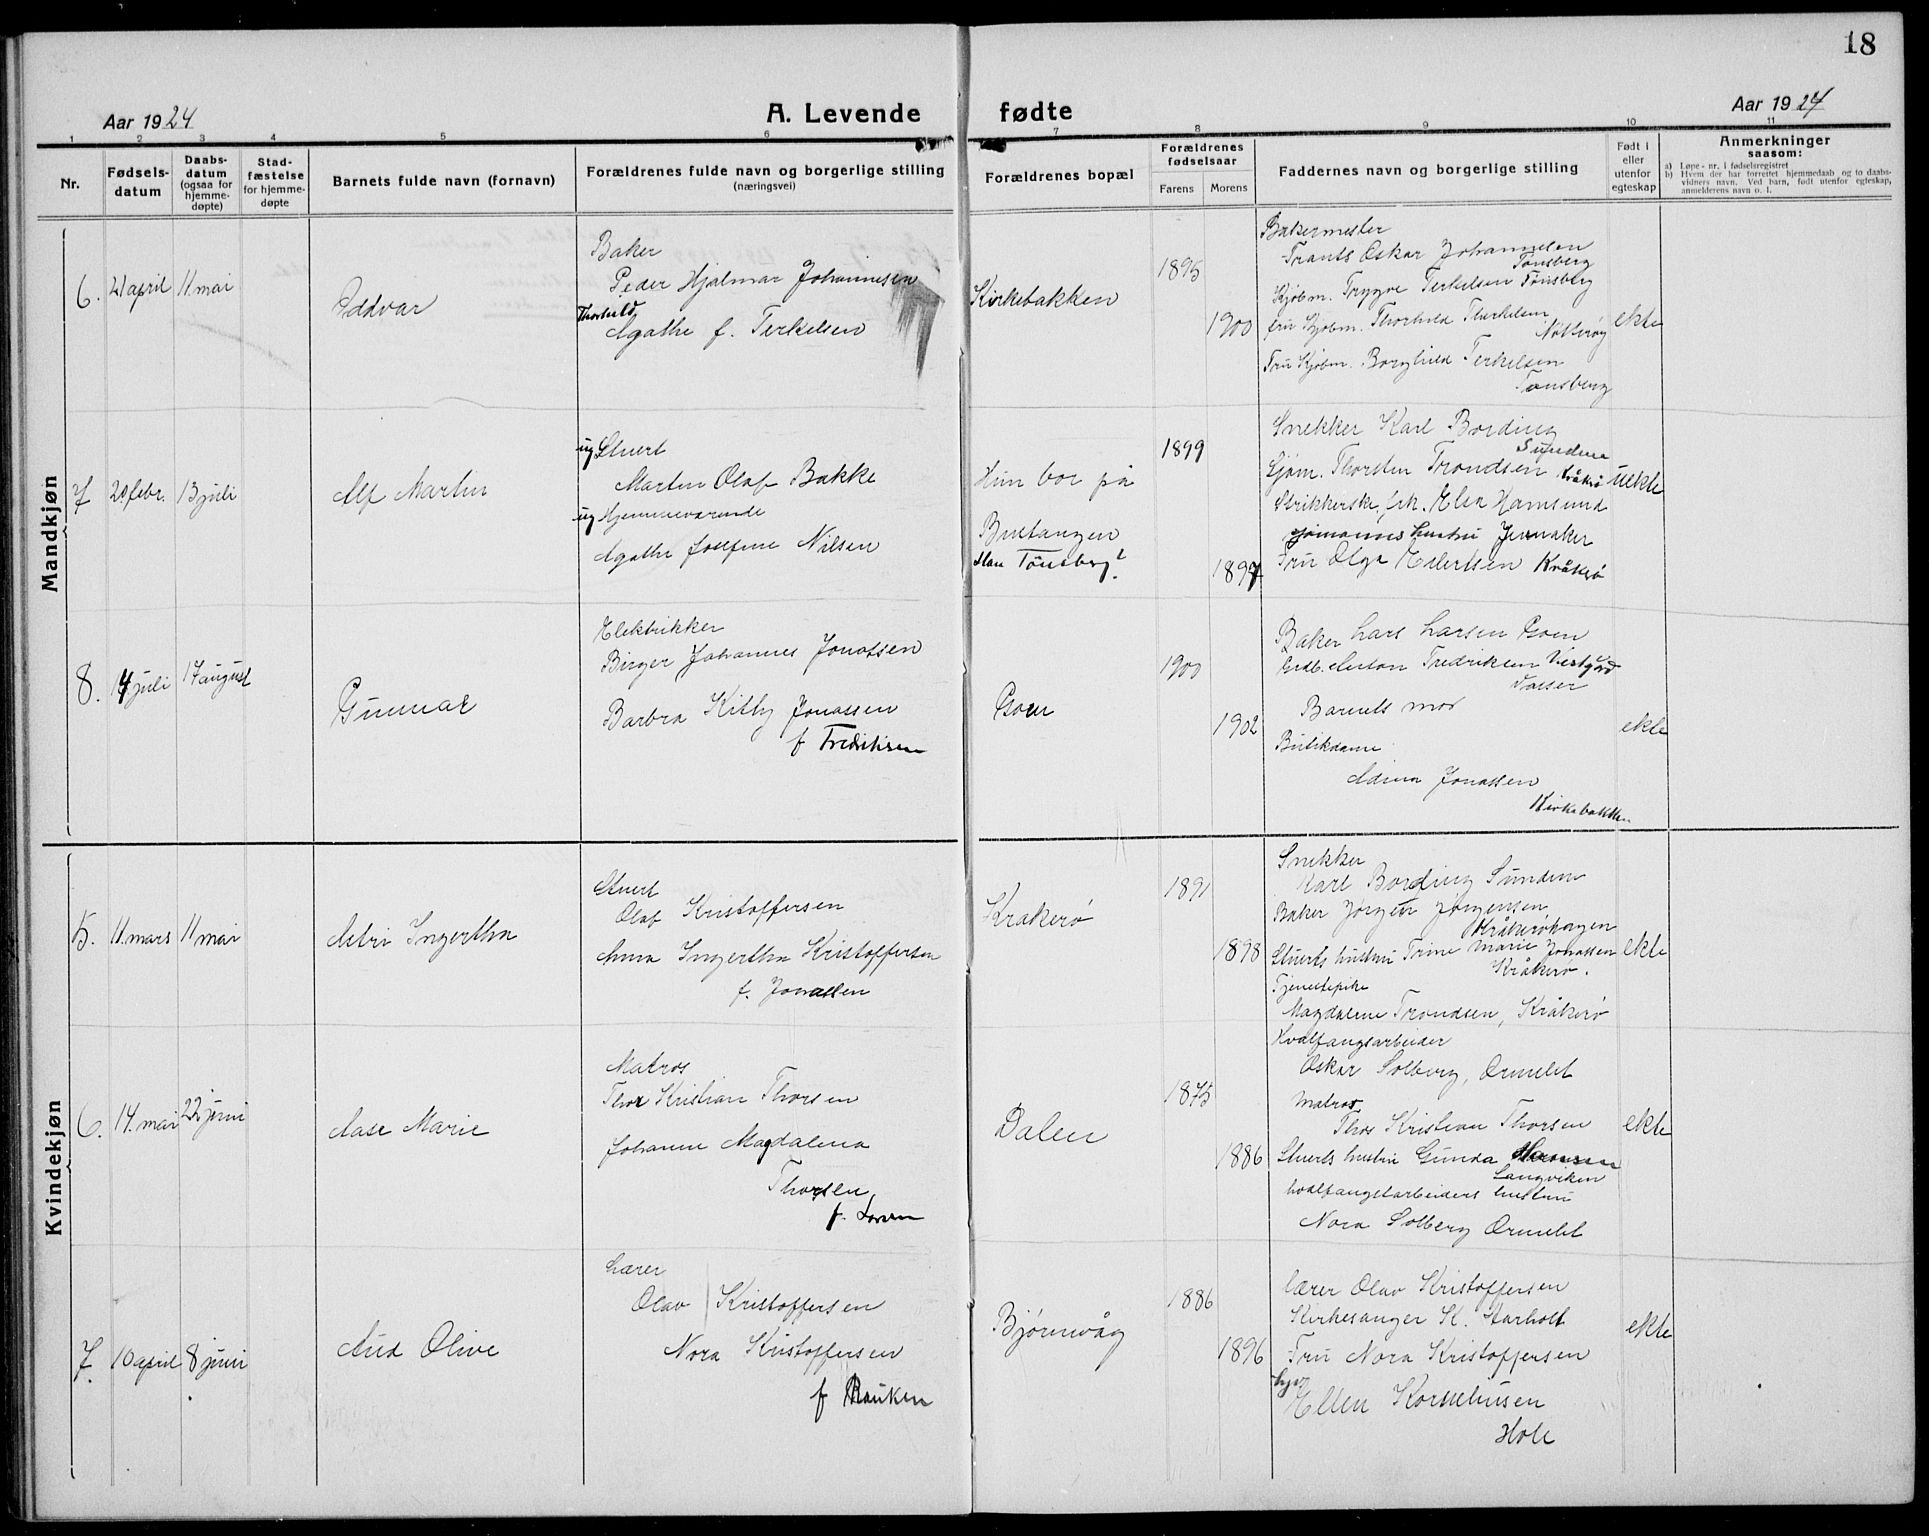 18
Aar 1924
A. Levende fødte
Aar 1924
1 2 3 4 5 6 7 8 9 10 11
Nr.
Fødsels-
datum
Daabs-
datum
(ogsaa for
hjemme-
døpte)
Stad-
fæstelse
for hjemme-
døpte
Barnets fulde navn (fornavn)
Forældrenes fulde navn og borgerlige stilling
(næringsvei)
Forældrenes bopæl
Forældrenes
fødselsaar
Farens Morens
Faddernes navn og borgerlige stilling
Født i
eller
utenfor
egteskap
Anmerkninger
saasom:
a) Løpe-nr. i fødselsregistret
b) Hvem der har forrettet hjemmedaab og to daabs-
vidners navn. Ved barn, født utenfor egteskap,
anmelderens navn o. l.
Mandkjøn
6. 21 april 11 mai
Oddvar
Baker
Peder Hjalmar Johannesen
Thorhild
Agathe f. Terkelsen
Kirkebakken
1895
1900
Bakermester
Frants Oskar Johannesen
Tønsberg
Kjøbm. Trygve Terkelsen Tønsberg
fru Kjøbm. Thorhild Therkelsen
Nøtterøy
Fru Kjøbm. Borghild Terkelsen
Tønsberg
ekte
7 20 febr. 13 juli
Alf Martin
ug Stuert
Marten Olaf Bakke
ug Hjemmeværende
Agathe Josefine Nilsen
Hun bor på
Bustangen
Han Tønsberg?
1899
1897
Snekker Karl Bording
Sundene
Sjøm. Thorsten Trondsen Kråkerø
Strikkerske frk. Elen Hamsund
sjømannes hustru
Fru Olga Eilertsen Kråkerø
uekte
8. 14 juli 17 august
Gunnar
Elektrikker
Birger Johannes Jonassen
Barbra Kitty Jonassen
f Fredriksen
1900
1902
Baker Lars Larsen
Grdb. Anton Fredriksen Vestgård
Barnets mor
Butikdame
Adina Jonassen
Kirkebakken
ekte
Kvindekjøn
5. 11. mars 11 mai
Astri Ingertha
Stuert
Olaf Kristoffersen
Anna Ingertha Kristoffersen
f. Jonassen
Krakerø
1891
1898
Snekker
Karl Bording Sunden
Baker Jørgen Jørgensen
Kråkerøhaugen
Stuerts hustru Trine Marie Jonassen
Kråkerø.
Tjenestepike
Magdalene Trondsen, Kråkerø
ekte
6. 14. mai 22 juni
Aase Marie
Matros
Thor Kristian Thorsen
Johanne Magdalena
Thorsen
f. Larsen
Dalen
1875
1886
Hvalfangsarbeider
Oskar Solberg, Ormelet
Matros
Thor Kristian Thorsen
Stuerts hustru Gunda Hansen
Langviken
hvalfangstarbeiders hustru
Nora Solberg Ormelet
ekte
7. 10 april 8 juni
Aud Olive
Lærer
Olav Kristoffersen
Nora Kristoffersen
f Bauken
Bjørnevåg
1886
1896
Lærer Olav Kristoffersen
Kirkesanger K. Starholt
Fru Nora Kristoffersen
Ellen Korneliusen
Hole
ekte